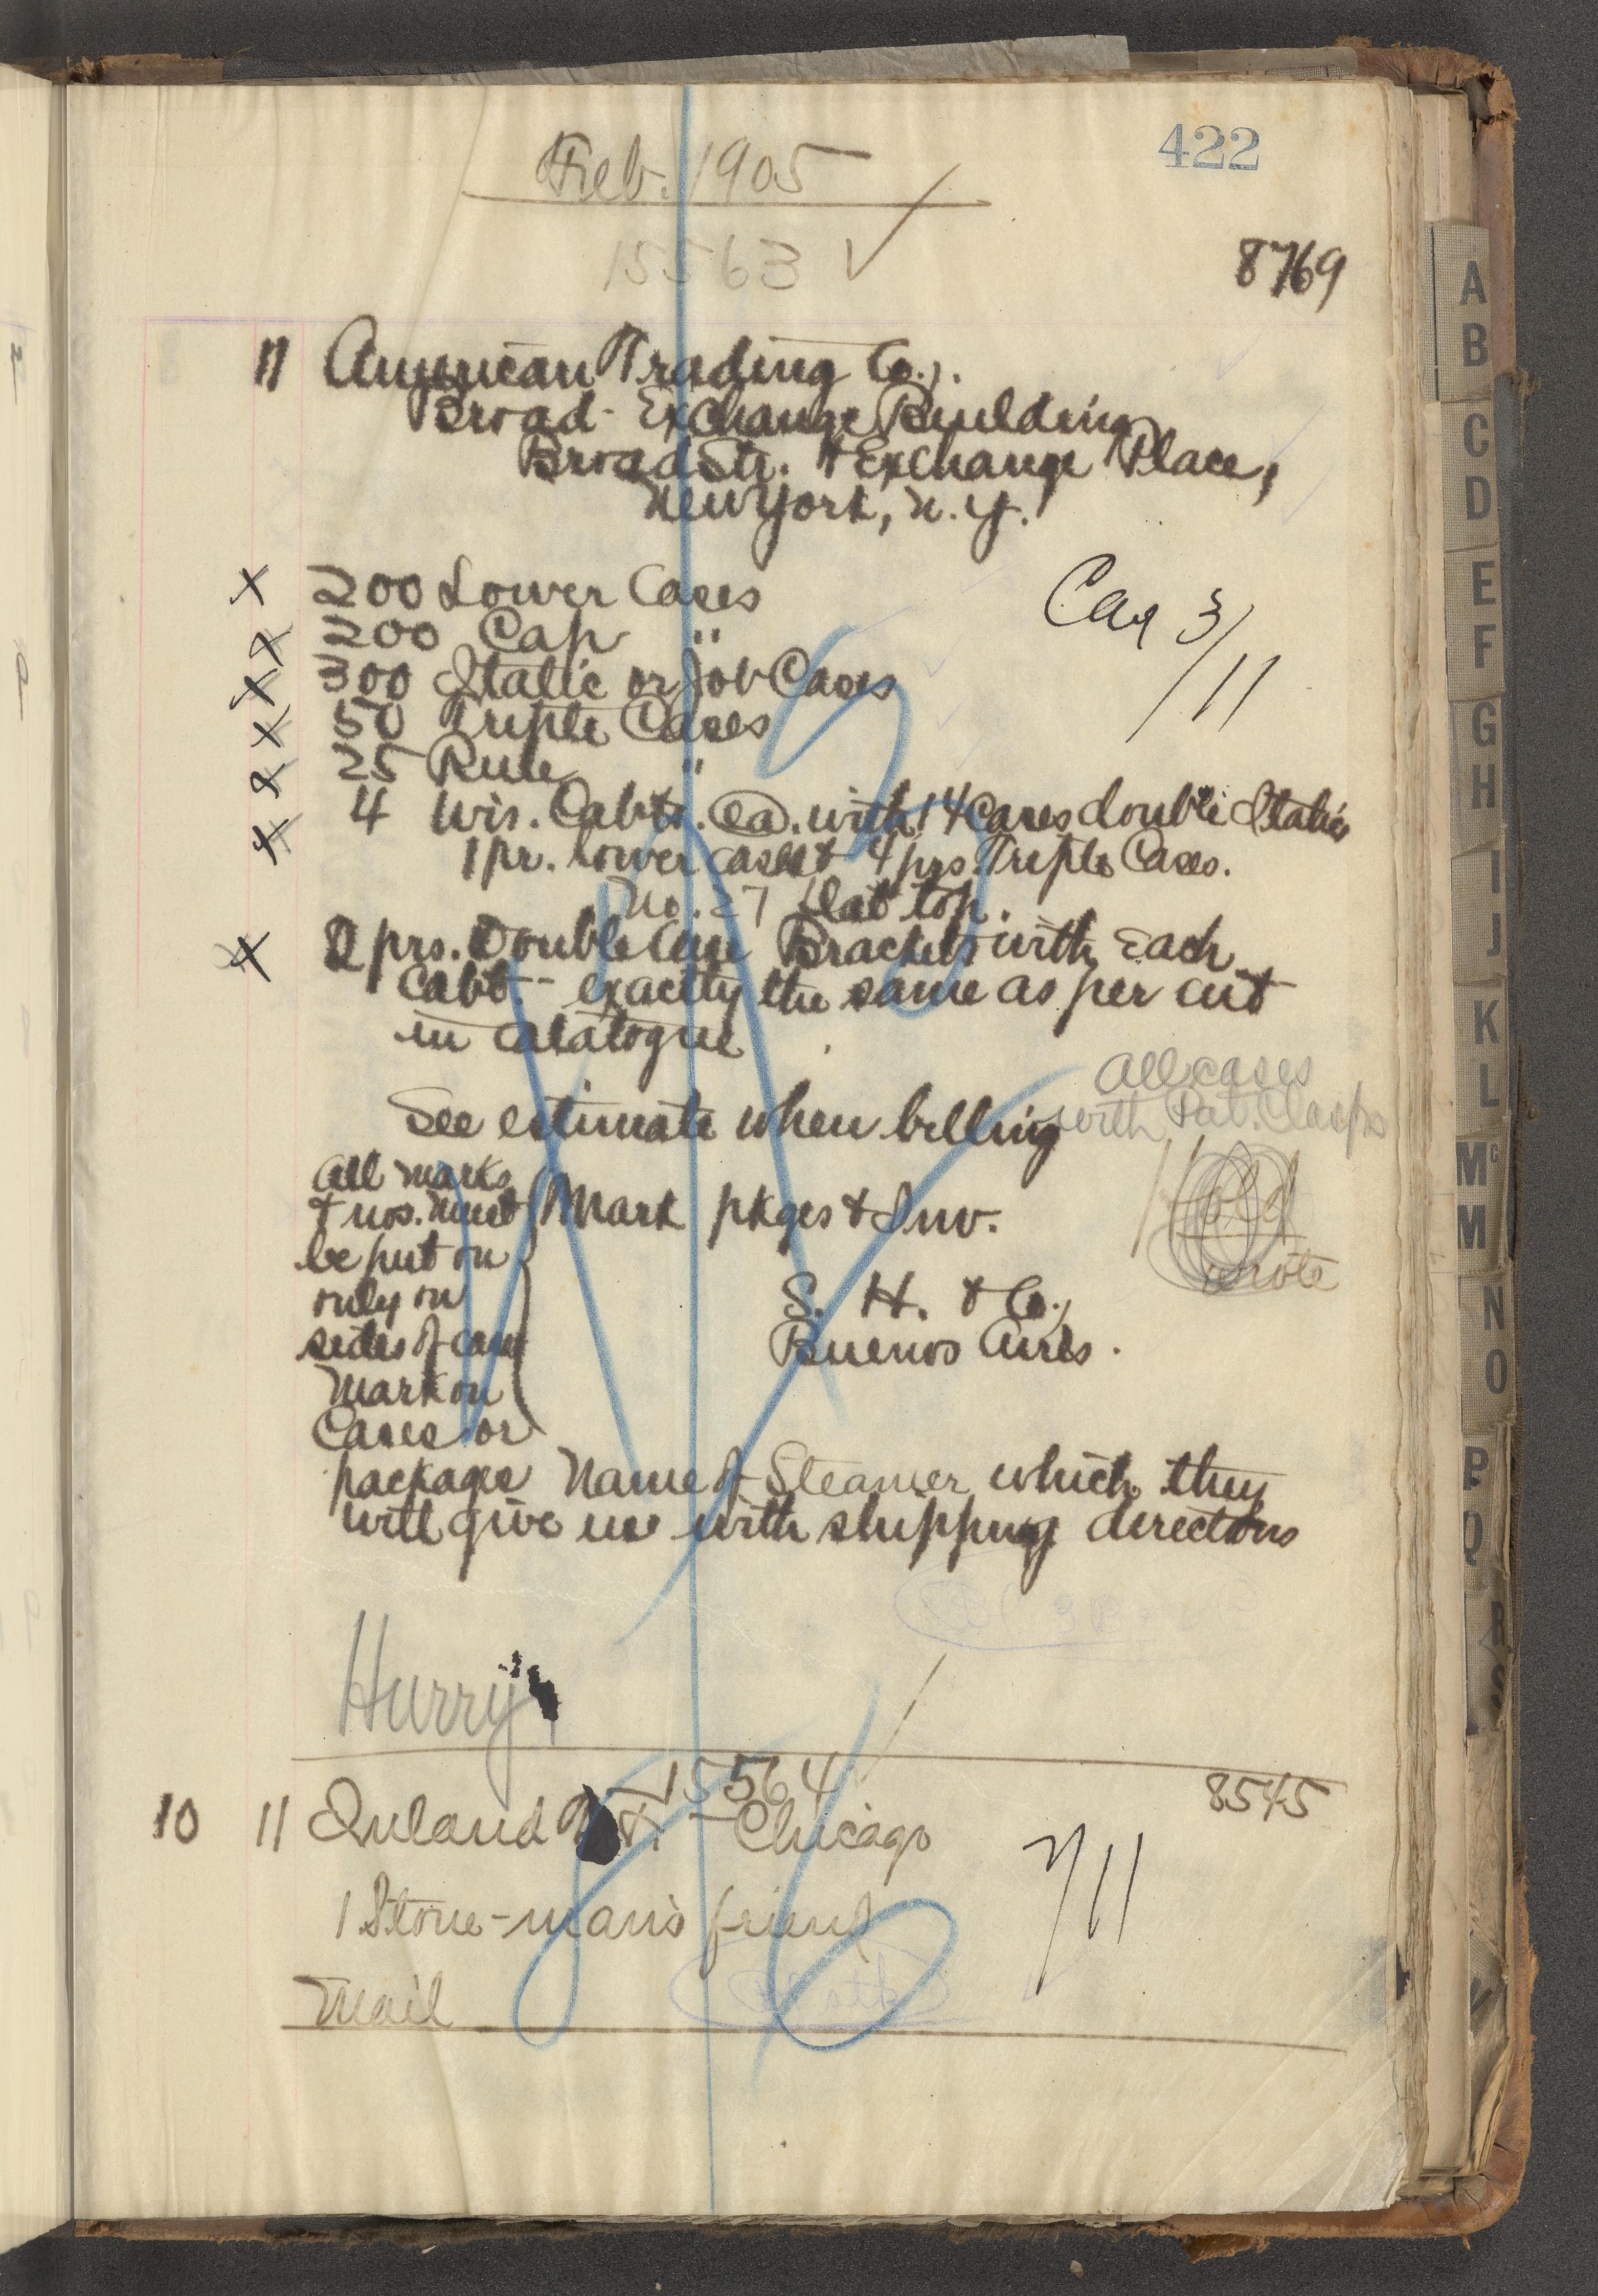 422
Feb. 1905
15563 ✓
8769
11 American Trading Co.,
Broad Exchange Building
Broad Str. & Exchange Place,
New York, N.Y.
x 200 Lower Cases
x 200 Cap "
x 300 Italic or Job Cases
x 50 Triple Cases
x 25 Rule "
Car 3/11
x 4 Wis. Cabts. ea. with 14 Cases double Italic
1 pr. lower cases & 4 prs. Triple Cases.
No. 27 flat top.
x 2 prs. Double Brackets with Each
Cabt. - exactly the same as per cut
in catalogue
All cases
with Pat. Clasps
See estimate when billing
All marks
& nos. must
be put on
only on
sides of case
Mark pkges & Inv.
wrote
S. H. & Co.,
Buenos Aires.
Mark on
Cases or
packages Name of Steamer which they
will give us with shipping directions
Hurry
15564
8545
10 11 Inland - Chicago
1 Stone-man's friend
Mail
A
B
C
D
E
F
G
H
I
J
K
L
Mc
M
N
O
P
Q
R
S